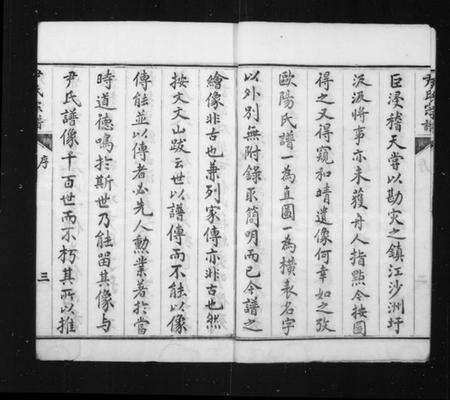 巨浸稽天嘗以勘灾之鎮江沙洲圩
汲汲將事亦未獲舟人指點令按圖
得之又得窺和靖遺像何幸如之攷
歐陽氏譜一為直圖一為橫表名字
以外別無附錄取簡明而已今譜之
繪像非古也兼列家傳亦非古也然
按文文山跋云世以譜傳而不能以像
傳能並以傳者必先人勲業著於當
時道德鳴於斯世乃能留其像與
尹氏譜像千百世而不朽其所以推
尹氏宗譜
序
三